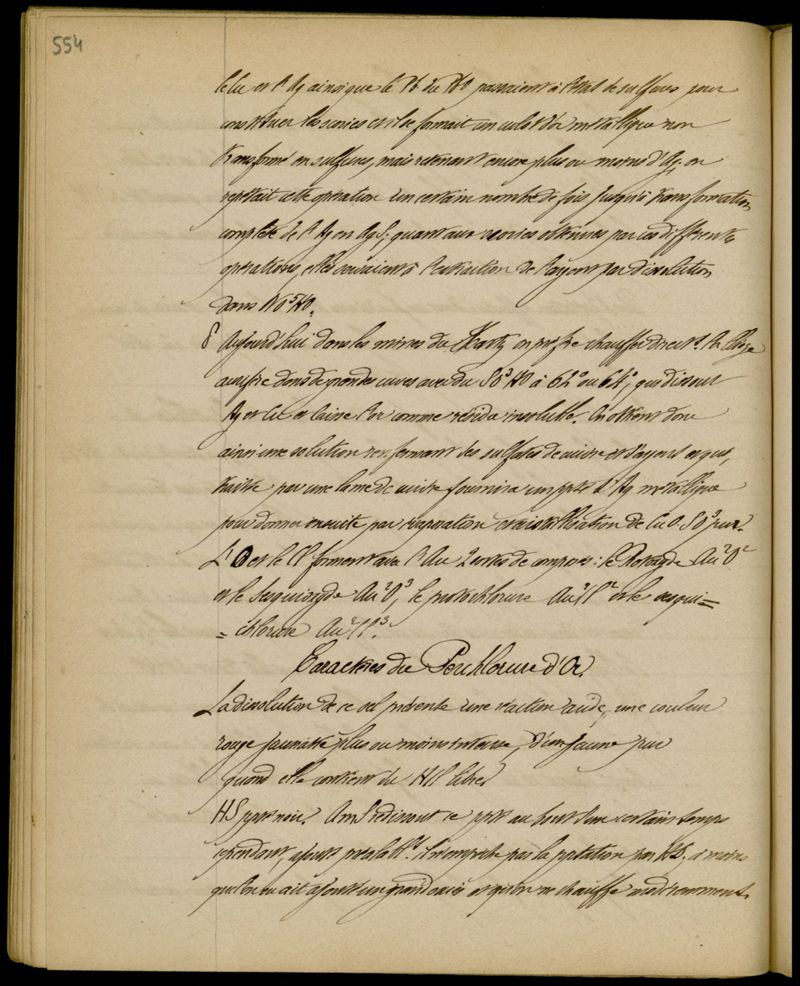 554
le Cu et l'Ag ainsi que le Pb du PbO passaient à l'état de sulfures pour
constituer les scories et il se formait un culot d'or métallique non
transformé en sulfures, mais retenant encore plus ou moins d'Ag; on
répétait cette opération un certain nombre de fois jusqu'à transformation
complète de l'Ag en AgS; quant aux scories obtenues par ces différentes
opérations, elles servaient à l'extraction de l'argent par dissolution
dans AzO⁵HO.
Aujourd'hui dans les mines du Hartz on préfère chauffer direct.t l'alliage
aurifère dans de grandes cuves avec du SO³HO à 62° ou 64°, qui dissout
Ag et Cu et laisse l'or comme résidu insoluble. On obtient donc
ainsi une solution renfermant des sulfates de cuivre et d'argent et qui,
traitée par une lame de cuivre fournira un ppté d'Ag métallique
pour donner ensuite par évaporation cristallisation de CuO.SO³ pur.
L'O et le Cl forment avec l'Au 2 sortes de composés: le Protoxyde Au²O
et le Sesquioxyde Au²O³, le protochlorure Au²Cl et le sesqui=
=chlorure Au²Cl³.
Caractères du Perchlorure d'Or.
La dissolution de ce sel présente une réaction acide, une couleur
rouge jaunâtre plus ou moins intense, d'un jaune pur
quand elle contient du HCl libre.
HS ppté noir. AmS redissout ce ppté au bout d'un certain temps
cependant, ajouté préalabl.t l'empêche par la pptation par HS. à moins
qu'on en ait ajouté un grand excès et qu'on ne chauffe modérément.